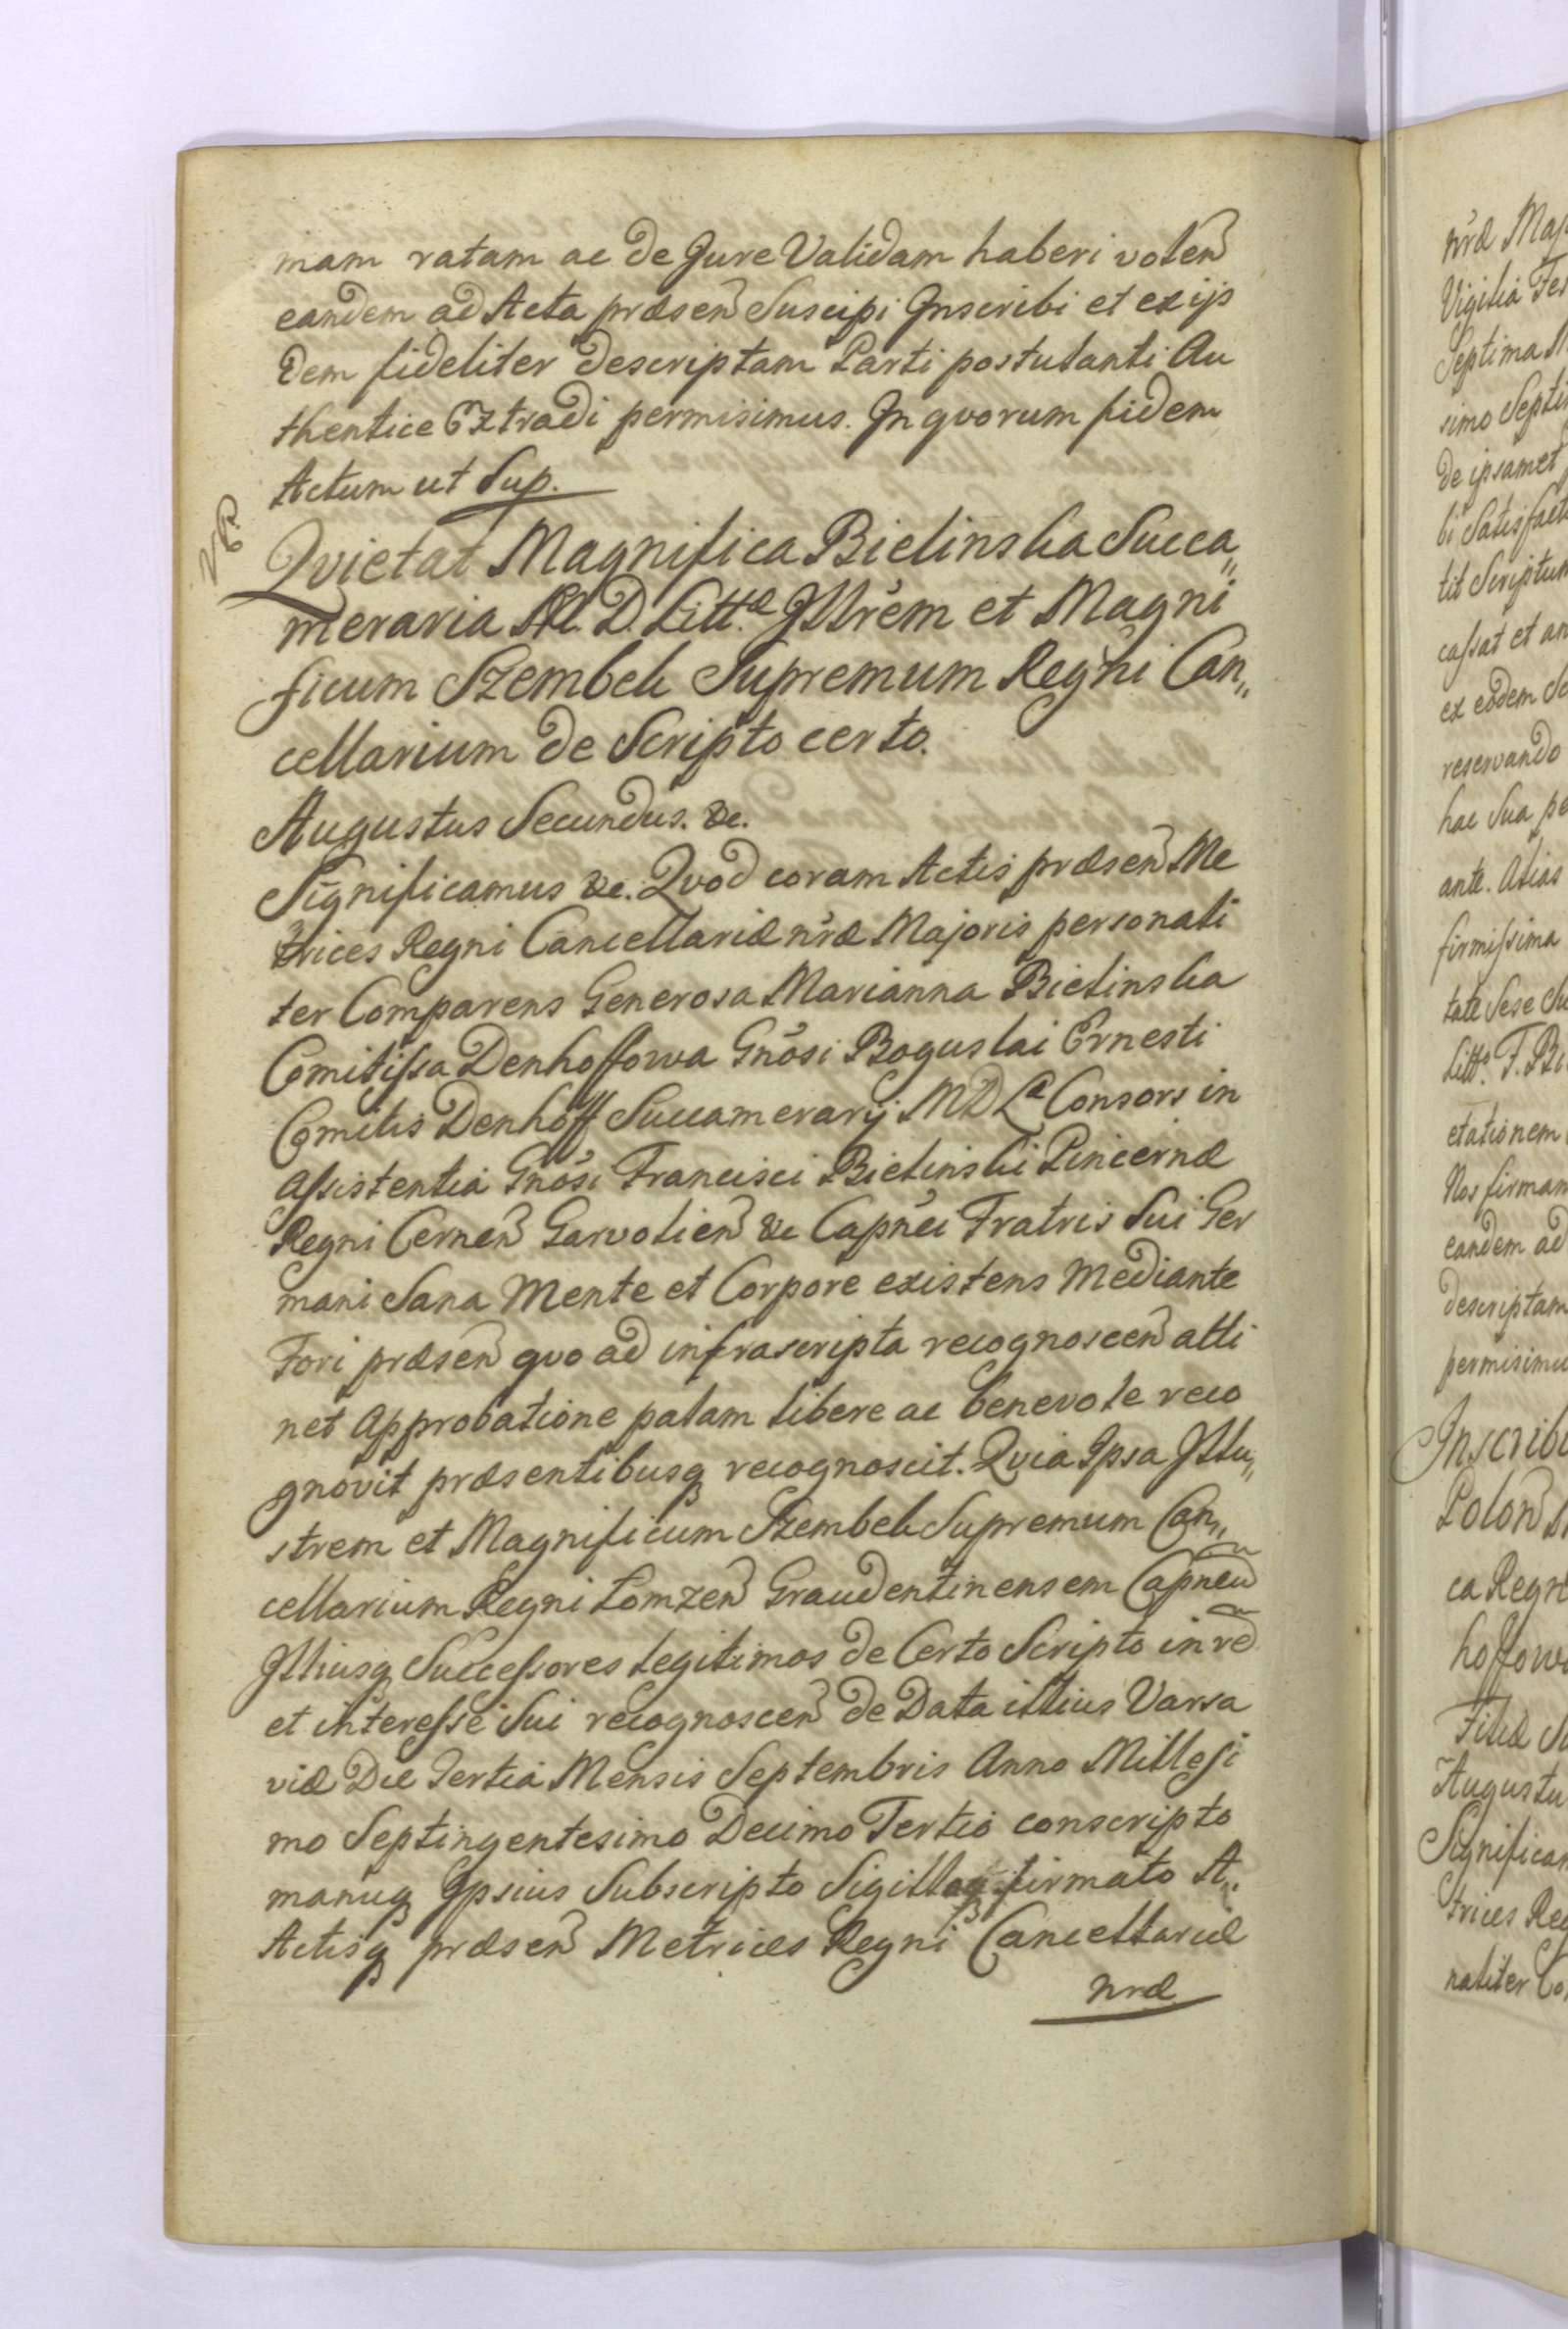 mam ratam ac de Jure Validam haberi volen
eandem ad Acta præsen Suscipi Inscribi et ex ijs
dem fideliter descriptam Parti postulanti Au
thentice Extradi permisimus. In qvorum fidem
Actum ut Sup.
Qvietat Magnifica Bielinska Succa„
meraria M. D. Litt.æ Illrem et Magni
ficum Szembek Supremum Regni Can„
cellarium de Scripto certo.
Augustus Secundus. &c.
Significamus &c. Qvod coram Actis præsen Me
trices Regni Cancellariæ nræ Majoris personali
ter Comparens Generosa Marianna Bielinska
Comitissa Denhoffowa Gnosi Boguslai Ernesti
Comitis Denhoff Succamerarij M D L Consors in
assistentia Gnosi Francisci Bielinski Pincernæ
Regni Cernen Garvolien &c Capnei Fratris Sui Ger
mani Sana Mente et Corpore existens Mediante
Fori præsen qvo ad infrascripta recognoscen atti
net Approbatione palam libere ac benevole reco
gnovit præsentibusq recognoscit. Qvia Ipsa Illu„
strem et Magnificum Szembek Supremum Can„
cellarium Regni Lomzen Graudentinensem Capneu
Illiusq Successores legitimos de Certo Scripto in re
et interesse Sui recognoscen de Data illius Varsa
viæ Die Tertia Mensis Septembris Anno Millesi
mo Septingentesimo Decimo Tertio conscripto
manuq Ipsius Subscripto Sigilloq firmato A.
Actisq præsen Metrices Regni Cancellariæ
nræ
nræ Maj
Vigilia Fes
Septima
simo Septi
de ipsamet
bi Satisfact
tit Scriptum
cassat et an
ex eodem Sc
reservando
hac Sua pe
ante. Alias
firmissima
tate Sese Su
Litt. F. Bi
etationem
Nos firmam
eandem ad
descriptam
permisimu
Inscribi
Polon
ca Regn
hoffowa
Filiæ Su
Augustu
Significam
trices Reg
naliter Co